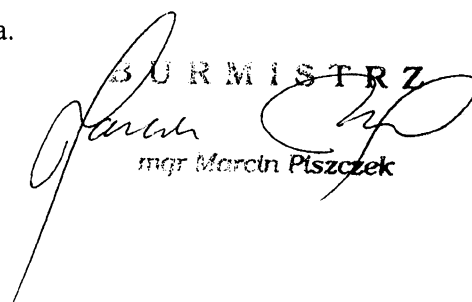 a.
BURMISTRZ
mgr Marcin Piszczek